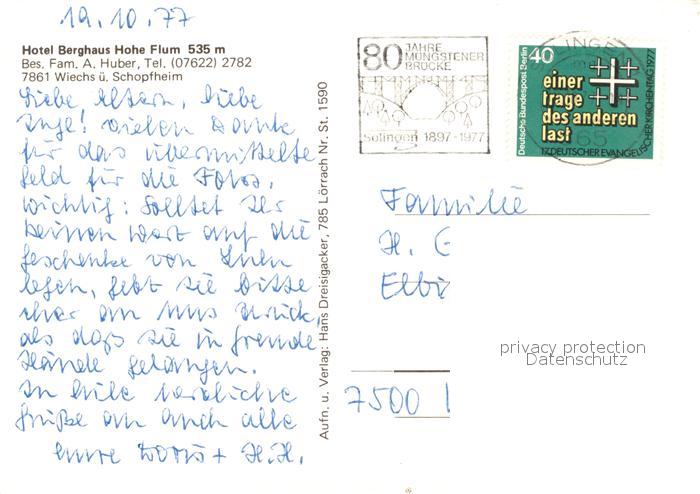 19.10.77
Hotel Berghaus Hohe Flum 535 m
Bes. Fam. A. Huber, Tel. (07622) 2782
7861 Wiechs ü. Schopfheim
Liebe Eltern, liebe
Inge! Vielen Dank
für das übermittelte
Geld für die Fotos.
Wichtig: Solltet Ihr
keinen Wert auf die
Geschenke von
legen, gebt sie bitte
eher an uns zurück,
als daß sie in fremde
Hände gelangen.
In Eile herzliche
Grüße an Euch alle
Eure Doris + H.H.
Aufn. u. Verlag: Hans Dreisigacker, 785 Lörrach Nr. St. 1590
80 JAHRE
MÜNGSTENER
BRÜCKE
Solingen 1897-1977
INGEN
65
Deutsche Bundespost Berlin
40
einer
trage
des anderen
last
17. DEUTSCHER EVANGELISCHER KIRCHENTAG 1977
Familie
H. G
Elbi
7500
privacy protection
Datenschutz